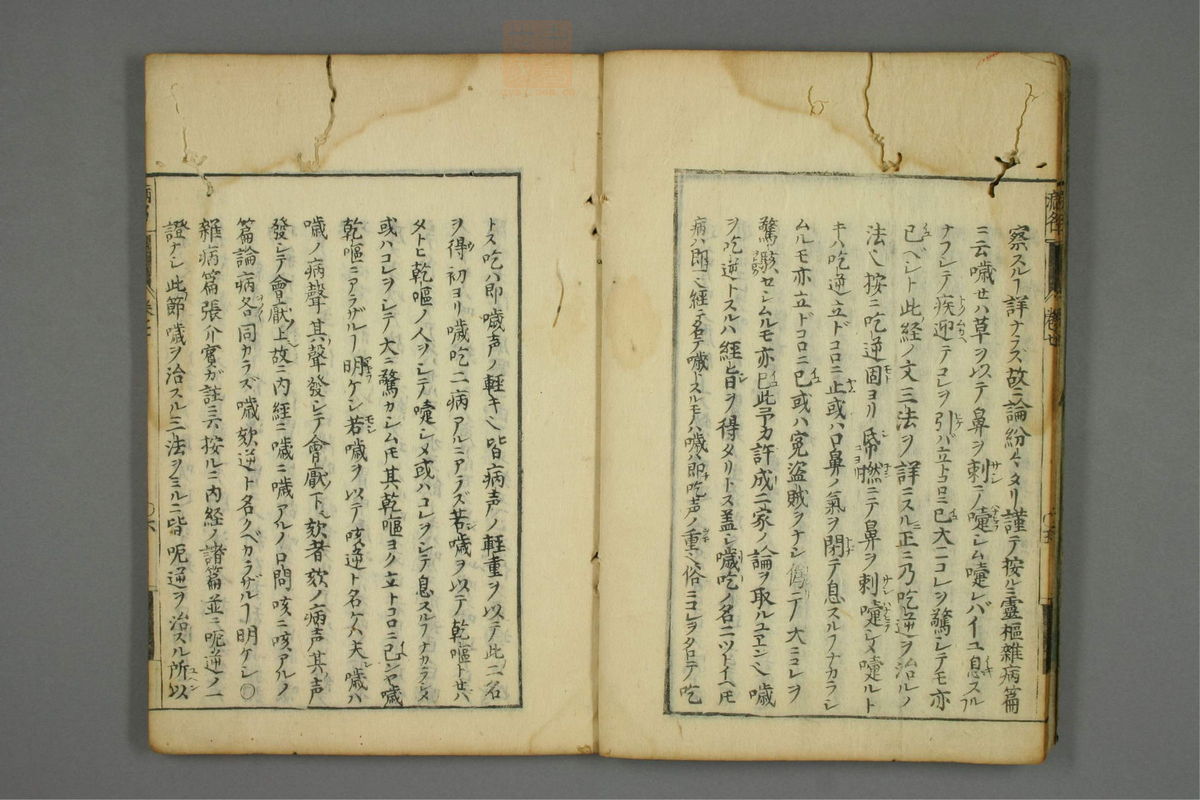 察スルヿ詳ナラズ故ニ論紛ムタリ謹テ按ルニ靈樞雜病篇
ニ云噦セハ草ヲ以テ鼻ヲ刺ニテ嚔シム嚔レバイユ息スルヿ
ナフシテ疾迎テコレヲ引バ立トコロニ已大ニコレヲ驚シテモ亦
已ベシト此経ノ文三法ヲ詳ニスル正ニ乃吃逆ヲ治ルノ
法也按ニ吃逆固ヨリ帋撚ニテ鼻ヲ刺嚔シメ嚔ルト
キハ吃逆立ドコロニ止或ハ口鼻ノ氣ヲ閉テ息スルヿナカラシ
ムルモ亦立ドコロニ已或ハ寃盜賊ヲナシ偽ニテ大ニコレヲ
驚駭セシムルモ亦已此予カ許成二家ノ論ヲ取ルユヱン也噦
ヲ吃逆トスルハ經旨ヲ得タリトス蓋シ噦吃ノ名二ツトイヘモ
病ハ即一也経ニ名テ噦トスルモノハ噦ハ即吃声ノ重也俗ニコレヲ名テ吃
トス吃ハ即噦声ノ軽キ也皆病声ノ軽重ヲ以テ此二名
ヲ得初ヨリ噦吃二病アルニアラズ若噦ヲ以テ乾嘔トセハ
タトヒ乾嘔ノ人ヲシテ嚔シメ或ハコレヲシテ息スルヿナカラシメ
或ハコレヲシテ大ニ驚カシムモ其乾嘔ヨク立トコロニ已ンヤ噦
乾嘔ニアラザルヿ明ケシ若噦ヲ以テ咳逆ト名ケハ夫噦ハ
噦ノ病聲其聲發シテ會厭下也欬者欬ノ病声其声
發シテ會厭上故ニ内經ニ噦ニ噦アルノ口問咳ニ咳アルノ
篇論病各同カラズ噦欬逆ト名クベカラザルヿ明ケシ〇
雜病篇張介賓ガ註ニ云按ルニ内経ノ諸篇並ニ呃逆ノ一
證ナシ此節噦ヲ治スル三法ヲミルニ皆呃逆ヲ治スル所以